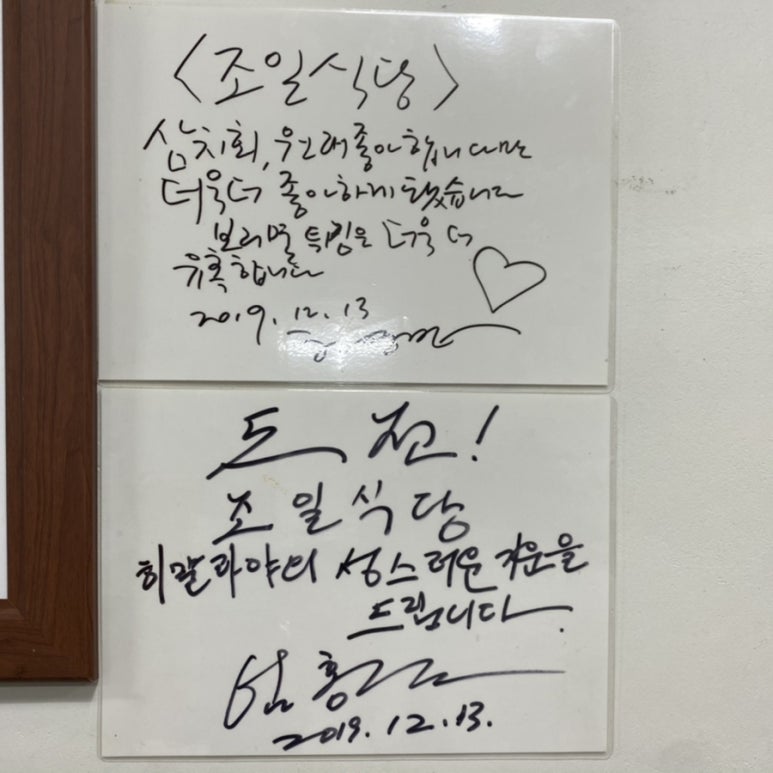 <조일식당>
삼치회, 원래 좋아합니다만
더욱더 좋아하게 됐습니다
보리멸 튀김은 더욱 더
유혹합니다
2019. 12. 13
도전!
조일식당
히말라야의 성스러운 기운을
드립니다.
엄홍길
2019. 12. 13.